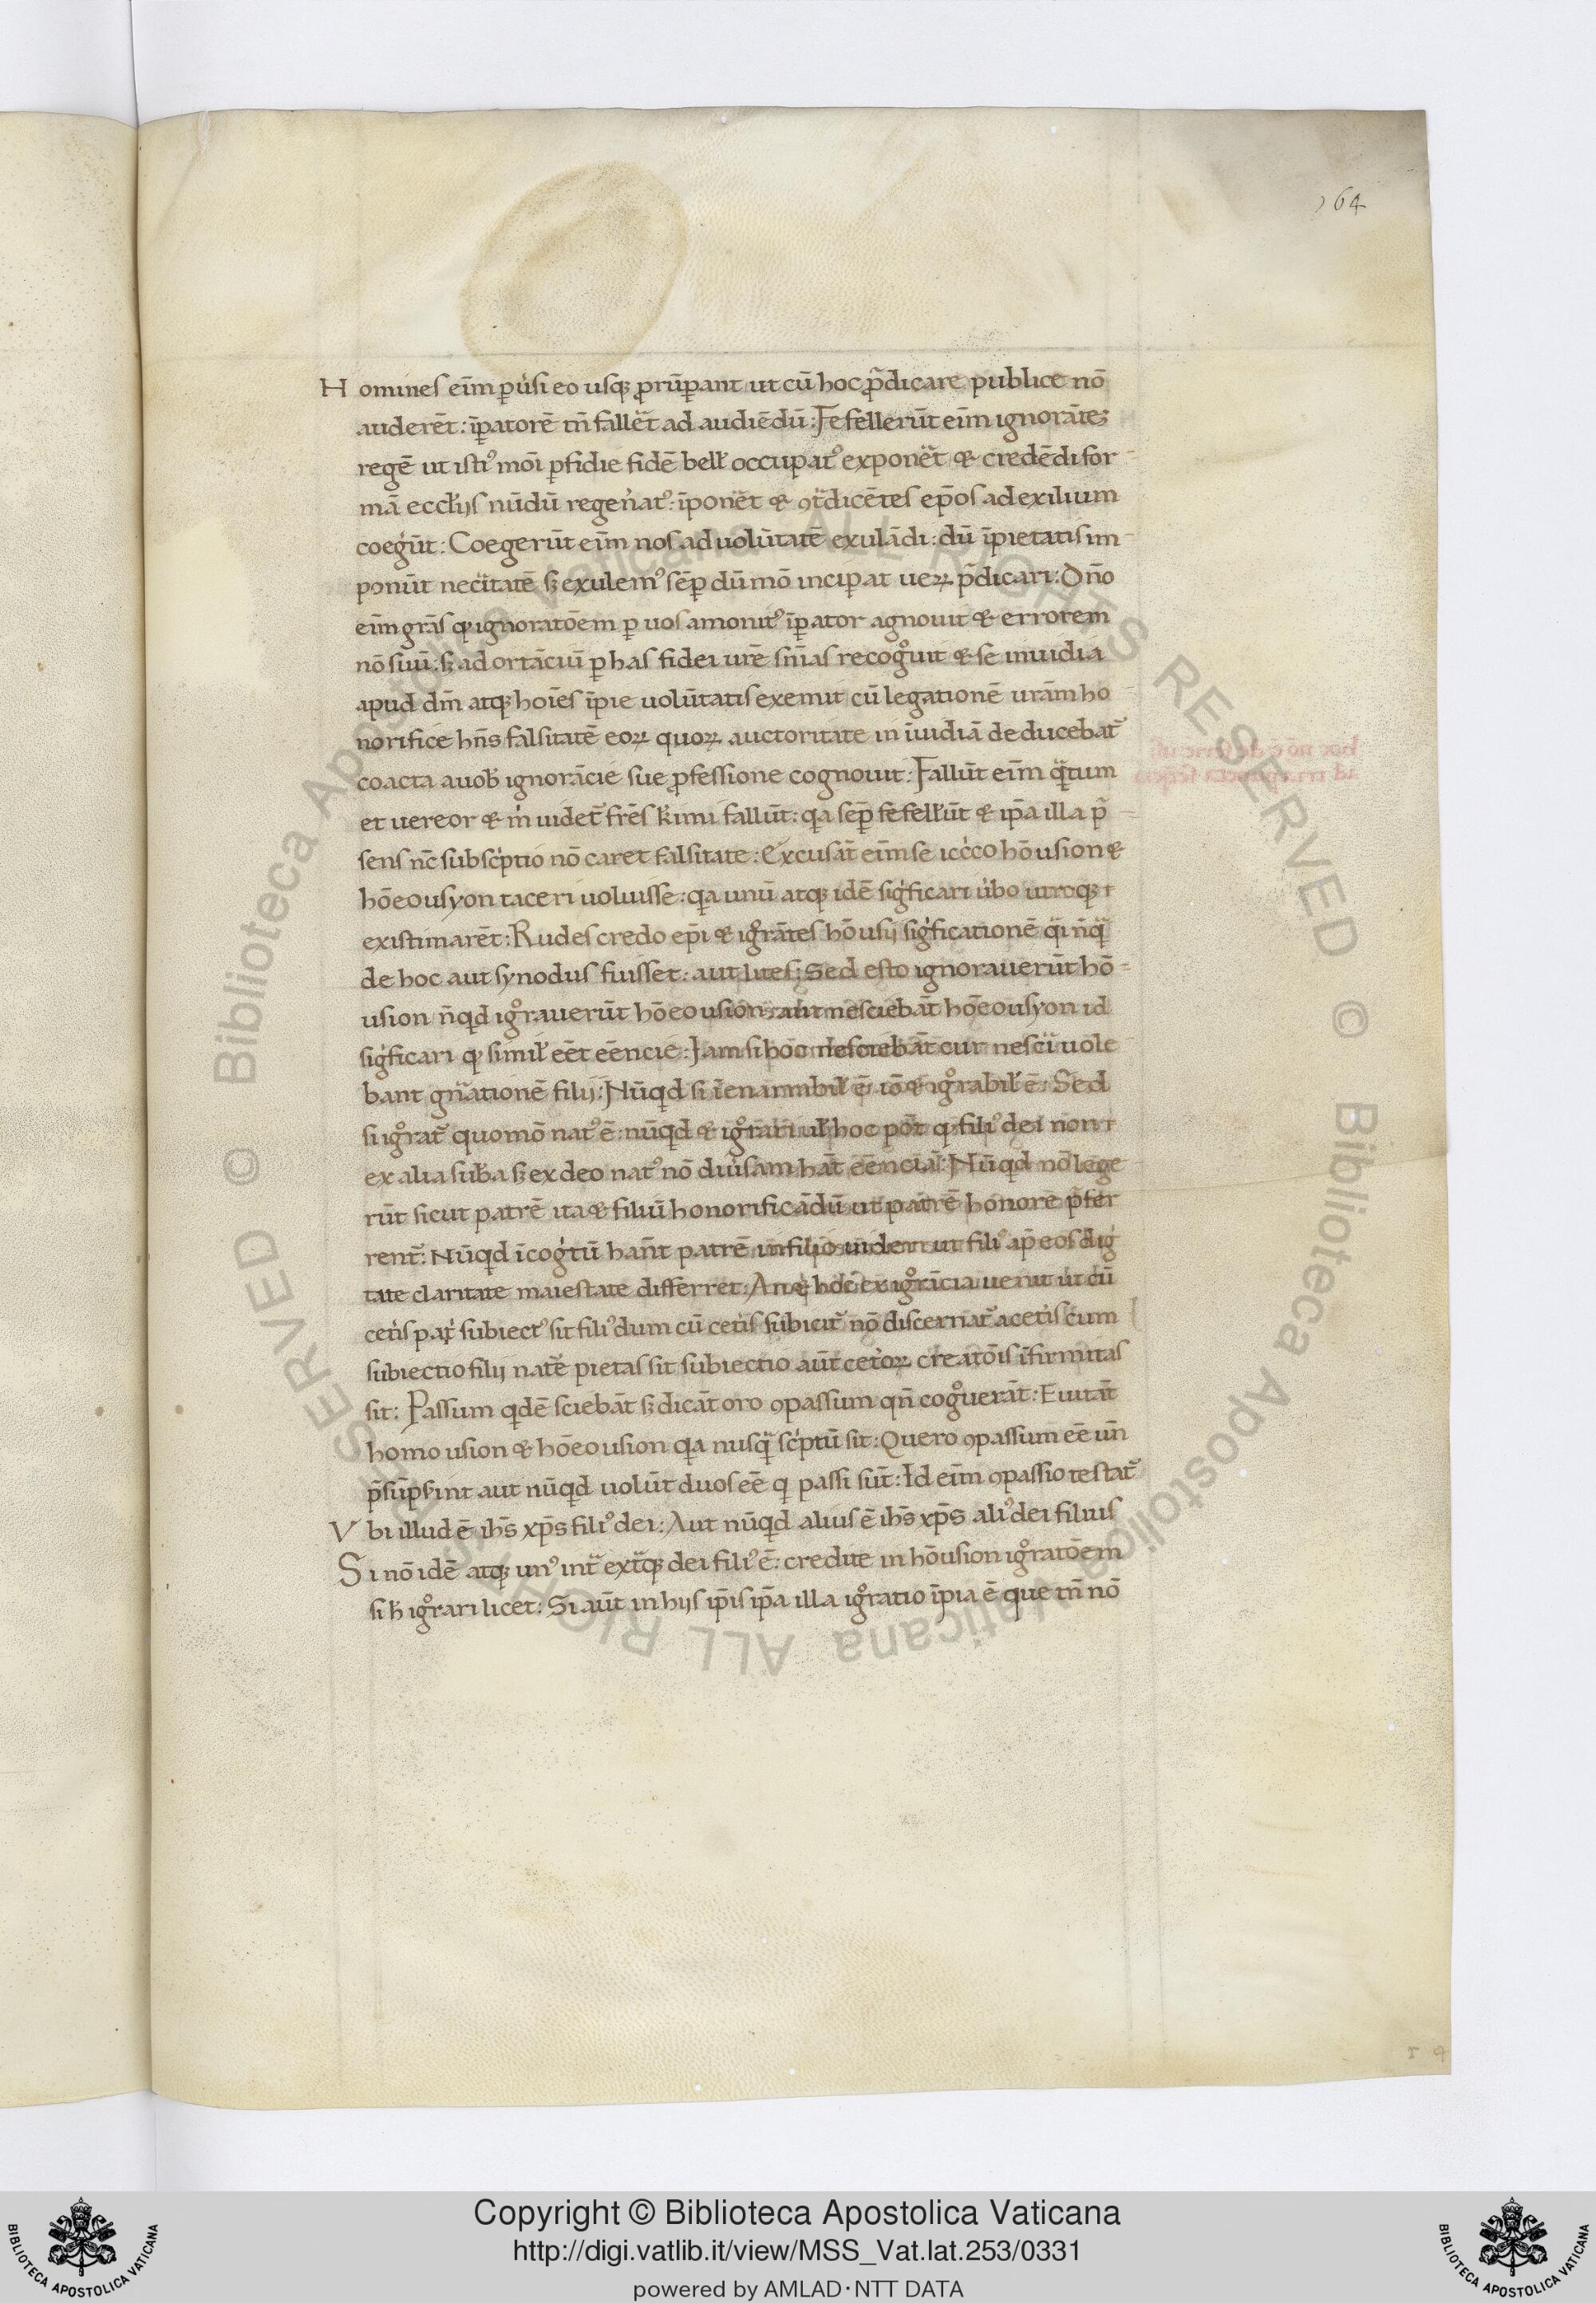 164
Homines eīm puͥsi eo usqꝫ prūpant ut cū hoc p̄dicare publice nō
auderēt: īpatorē tn̄ fallet̄ ad audiēdū: Fefellerūt eīm ignorātē
regē ut isti᾽ mōi pfidie fidē bell' occupat᾽ exponet̄ & credēdi for
mā eccl'ijs nūdū regen̄at᾽: īponet̄ & ꝯt̄dicētes ep̄os ad exilium
coeg̍ūt: Coegerūt eīm nos ad uolūtatē exulādi: dū īpietatis im
ponūt necitatē sꝫ exulem᾽ sēp dū mō incipat ueꝝ p̄dicari: Dn̄o
eīm grās qꝫ ignoratōem p uos amonit᾽ īpator agnouit & errorem
nō suū: sꝫ ad ortāciū p has fidei ur̄e sn̄ias recogͦuit & se inuidia
apud dm̄ atqꝫ hoīes īpie uolūtatis exemit cū legationē urām ho
norifice hn̄s falsitatē eoꝝ quoꝝ auctoritate in īuidiā deducebat᷑
coacta auob' ignorācie sue pfessione cognouit: Fallūt eīm qͣtum
et uereor & m̍ uidet᷑ fr̄es k'imi fallūt: qa sēp fefell'ūt & ip̄a illa p̄
sens nc̄ subscͥptio nō caret falsitate: Excusāt eīm se icc̍co hōusion &
hōeousyon taceri uoluisse: qa unū atqꝫ idē sig̍ficari u̍bo utroqꝫ
existimarēt: Rudes credo ep̄i & igͦrātes hōusij sig̍ficationē qͣi n̄qͣ
de hoc aut synodus fuisset: aut lites: Sed esto ignorauerūt hō
usion n̄qd igͦrauerūt hōeousion: aut nesciebāt hōeousyon id
sig̍ficari qꝫ simil' eēt eēncie: Iam si hoc nesciebāt cur nesci uole
bant gn̄ationē filij: Nūqd si īenarrabil' ē iō & igͦrabil' ē: Sed
si igͦrat᷑ quomō nat᾽ ē: nūqd & igͦrari ul' hoc pōt qꝫ fili᾽ dei non
ex alia sub'a sꝫ ex deo nat᾽ nō diuͥsam hāt eēnciā: Nūqd nō lege
rūt sicut patrē ita & filiū honorificādū ut patrē honorē p̄fer
rent᷑: Nūqd īcog̍tū han̄t patrē in filio uideri ut fili᾽ ap̄ eos dig̍
tate claritate maiestate differret: An & hoc ex igͦrācia uenit ut cū
cet̍is pat̍ subiect᾽ sit fili᾽ dum cū cet̍is subicit᷑ nō discernat᷑ a cet̍is cum
subiectio filij nat̄e pietas sit subiectio aūt cet̍oꝝ creatōis īfirmitas
sit: Passum qdē sciebāt sꝫ dicāt oro ꝯpassum qn̄ cogͦuerāt: Euitāt
homousion & hōeousion qa nusqͣ scͥptū sit: Quero ꝯpassum eē un̄
p̄sūpsint aut nūqd uolūt duos eē q passi sūt: Id eīm ꝯpassio testat᷑
Vbi illud ē ihs̄ xp̄s fili᾽ dei: Aut nūqd alius ē ihs̄ xp̄s ali᾽ dei filius
Si nō idē atqꝫ un᾽ int̄ ext̄qꝫ dei fili᾽ ē: credite in hōusion igͦratōem
si h' igͦrari licet: Si aūt in hijs ip̄is ip̄a illa igͦratio īpia ē que tn̄ nō
Copyright © Biblioteca Apostolica Vaticana
http://digi.vatlib.it/view/MSS_Vat.lat.253/0331
powered by AMLAD·NTT DATA